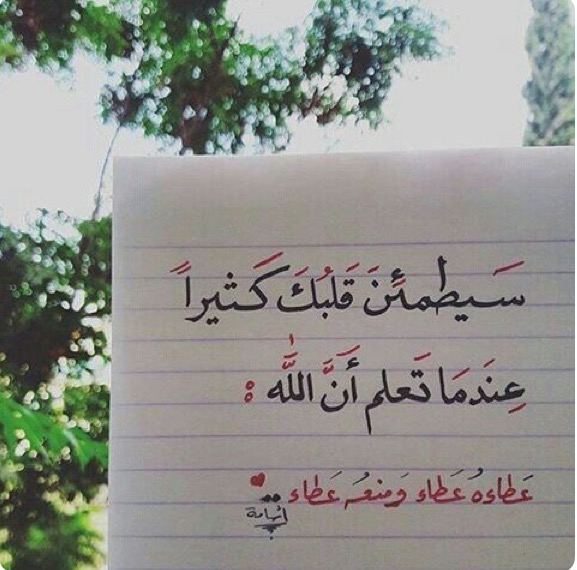 سَيطمئنَ قَلبُكَ كَثيراً
عِندَمَا تَعلم أنَّ اللَّه :
عَطاءهُ عَطاء وَمنعُه عَطاء
أسامة